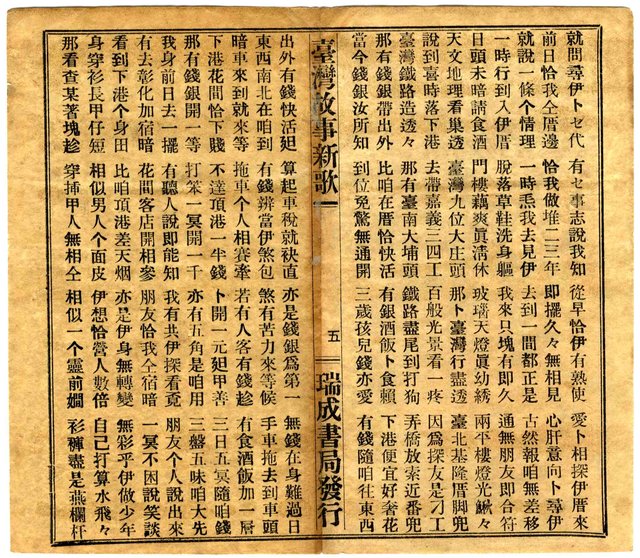 就問尋伊卜セ代　有セ事志說我知　從早恰伊有熟使　愛卜相探伊厝來
前日恰我仝厝邊　恰我做堆二三年　即擺久々無相見　心肝意向卜尋伊
就說一條个情理　一時焄我去見伊　去到一間都正是　古然報咱無差移
一時行到入伊厝　脫落草鞋洗身軀　我來只塊有即久　通無朋友即合符
日頭未暗請食酒　門樓藕爽眞清休　玻璃天燈眞幼綉　兩平樓燈光鍬々
天文地理看巢透　臺灣九位大庄頭　那卜臺灣行盡透　臺北基隆厝脚兜
說到喜時落下港　去帶嘉義三四工　百般光景看一疼　因爲探友是刁工
臺灣鐵路造透々　那有臺南大埔頭　鐵路盡尾到打狗　弄橋放索近番兜
那有錢銀帶出外　比咱在厝恰快活　有銀酒飯卜食賴　下港便宜好奢花
當今錢銀汝所知　到位免驚無通開　三歲孩兒錢亦愛　有錢隨咱往東西
臺灣故事新歌　五　瑞成書局發行
出外有錢快活𨑨　算起車稅就袂直　亦是錢銀爲第一　無錢在身難過日
東西南北在咱到　有錢辨當伊煞包　煞有苦力來等候　手車拖去到車頭
暗車來到就來等　拖車个人相賽牽　若有人客有錢趁　有食酒飯加一間
下港花間恰下賤　不達頂港一半錢　卜開一元𨑨甲善　三日五冥隨咱錢
那有錢銀開一等　打笨一冥開一千　亦有五角是咱用　三盤五味咱大先
我身前日去一擺　有聽人說即能知　我有共伊探看覓　朋友个人說出來
有去彰化加宿暗　花間客店開相參　朋友恰我仝宿暗　一冥不困說笑談
看到下港个身田　比咱頂港差天烟　亦是伊身無轉變　無彩乎伊做少年
身穿衫長甲仔短　相似男人个面皮　伊想恰營人數倍　自己打算水飛々
那看查某著塊趁　穿插甲人無相仝　相似一个靈前嫺　衫褲盡是燕欄杆